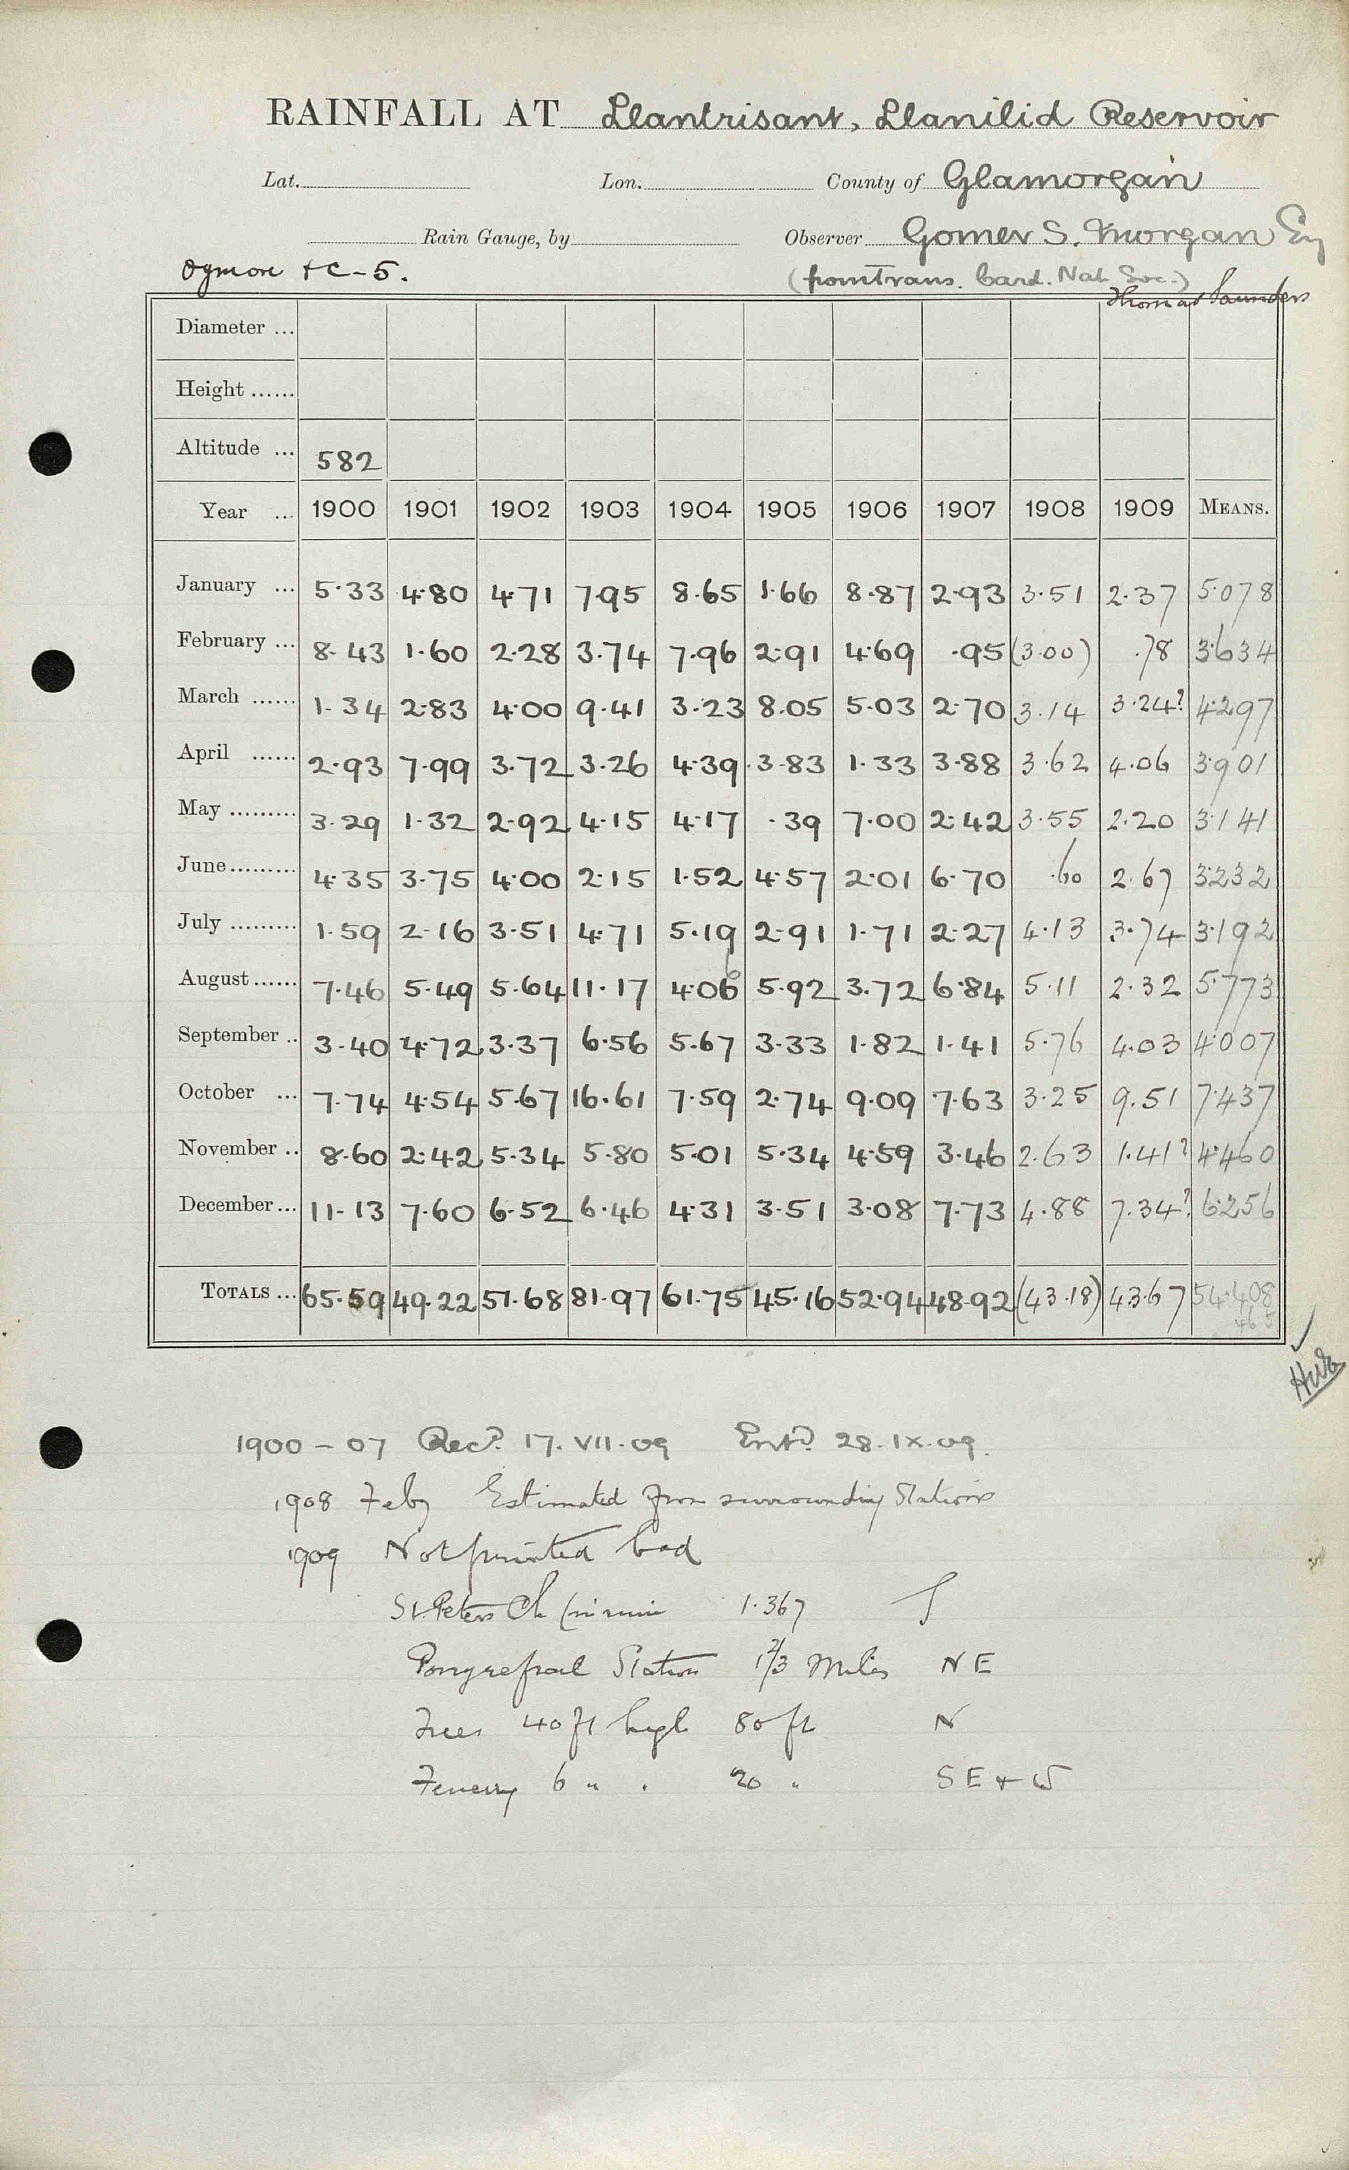 RAINFALL AT Llantrisant, Llanilid Reservoir
Lat. Lon. County of Glamorgan
Rain Gauge, by Observer Gomer S. Morgan Esq
Ogmore +C-5. (from Trans. Card. Nat. Soc.)
Thomas Saunders
Diameter ...
Height ......
Altitude ... 582
Year ... 1900 1901 1902 1903 1904 1905 1906 1907 1908 1909 MEANS.
January ... 5.33 4.80 4.71 7.95 8.65 1.66 8.87 2.93 3.51 2.37 5.078
February ... 8.43 1.60 2.28 3.74 7.96 2.91 4.69 .95 (3.00) .78 3.634
March ...... 1.34 2.83 4.00 9.41 3.23 8.05 5.03 2.70 3.14 3.24? 4.297
April ...... 2.93 7.99 3.72 3.26 4.39 3.83 1.33 3.88 3.62 4.06 3.901
May ......... 3.29 1.32 2.92 4.15 4.17 .39 7.00 2.42 3.55 2.20 3.141
June ......... 4.35 3.75 4.00 2.15 1.52 4.57 2.01 6.70 .60 2.67 3.232
July ......... 1.59 2.16 3.51 4.71 5.19 2.91 1.71 2.27 4.13 3.74 3.192
August ...... 7.46 5.49 5.64 11.17 4.06 5.92 3.72 6.84 5.11 2.32 5.773
September .. 3.40 4.72 3.37 6.56 5.67 3.33 1.82 1.41 5.76 4.03 4.007
October ... 7.74 4.54 5.67 16.61 7.59 2.74 9.09 7.63 3.25 9.51 7.437
November .. 8.60 2.42 5.34 5.80 5.01 5.34 4.59 3.46 2.63 1.41? 4.460
December ... 11.13 7.60 6.52 6.46 4.31 3.51 3.08 7.73 4.88 7.34? 6.256
TOTALS ... 65.59 49.22 51.68 81.97 61.75 45.16 52.94 48.92 (43.18) 43.67 54.408
46 5
1900 - 07 Recd. 17.VII.09 Entd. 28.IX.09.
1908 Feby Estimated from surrounding Stations
1909 Not printed bad
St. Peters Ch (in ruin 1.367 S
Station 1 2/3 Miles NE
Trees 40 ft high 80 ft N
6 " . 20 " SE + W